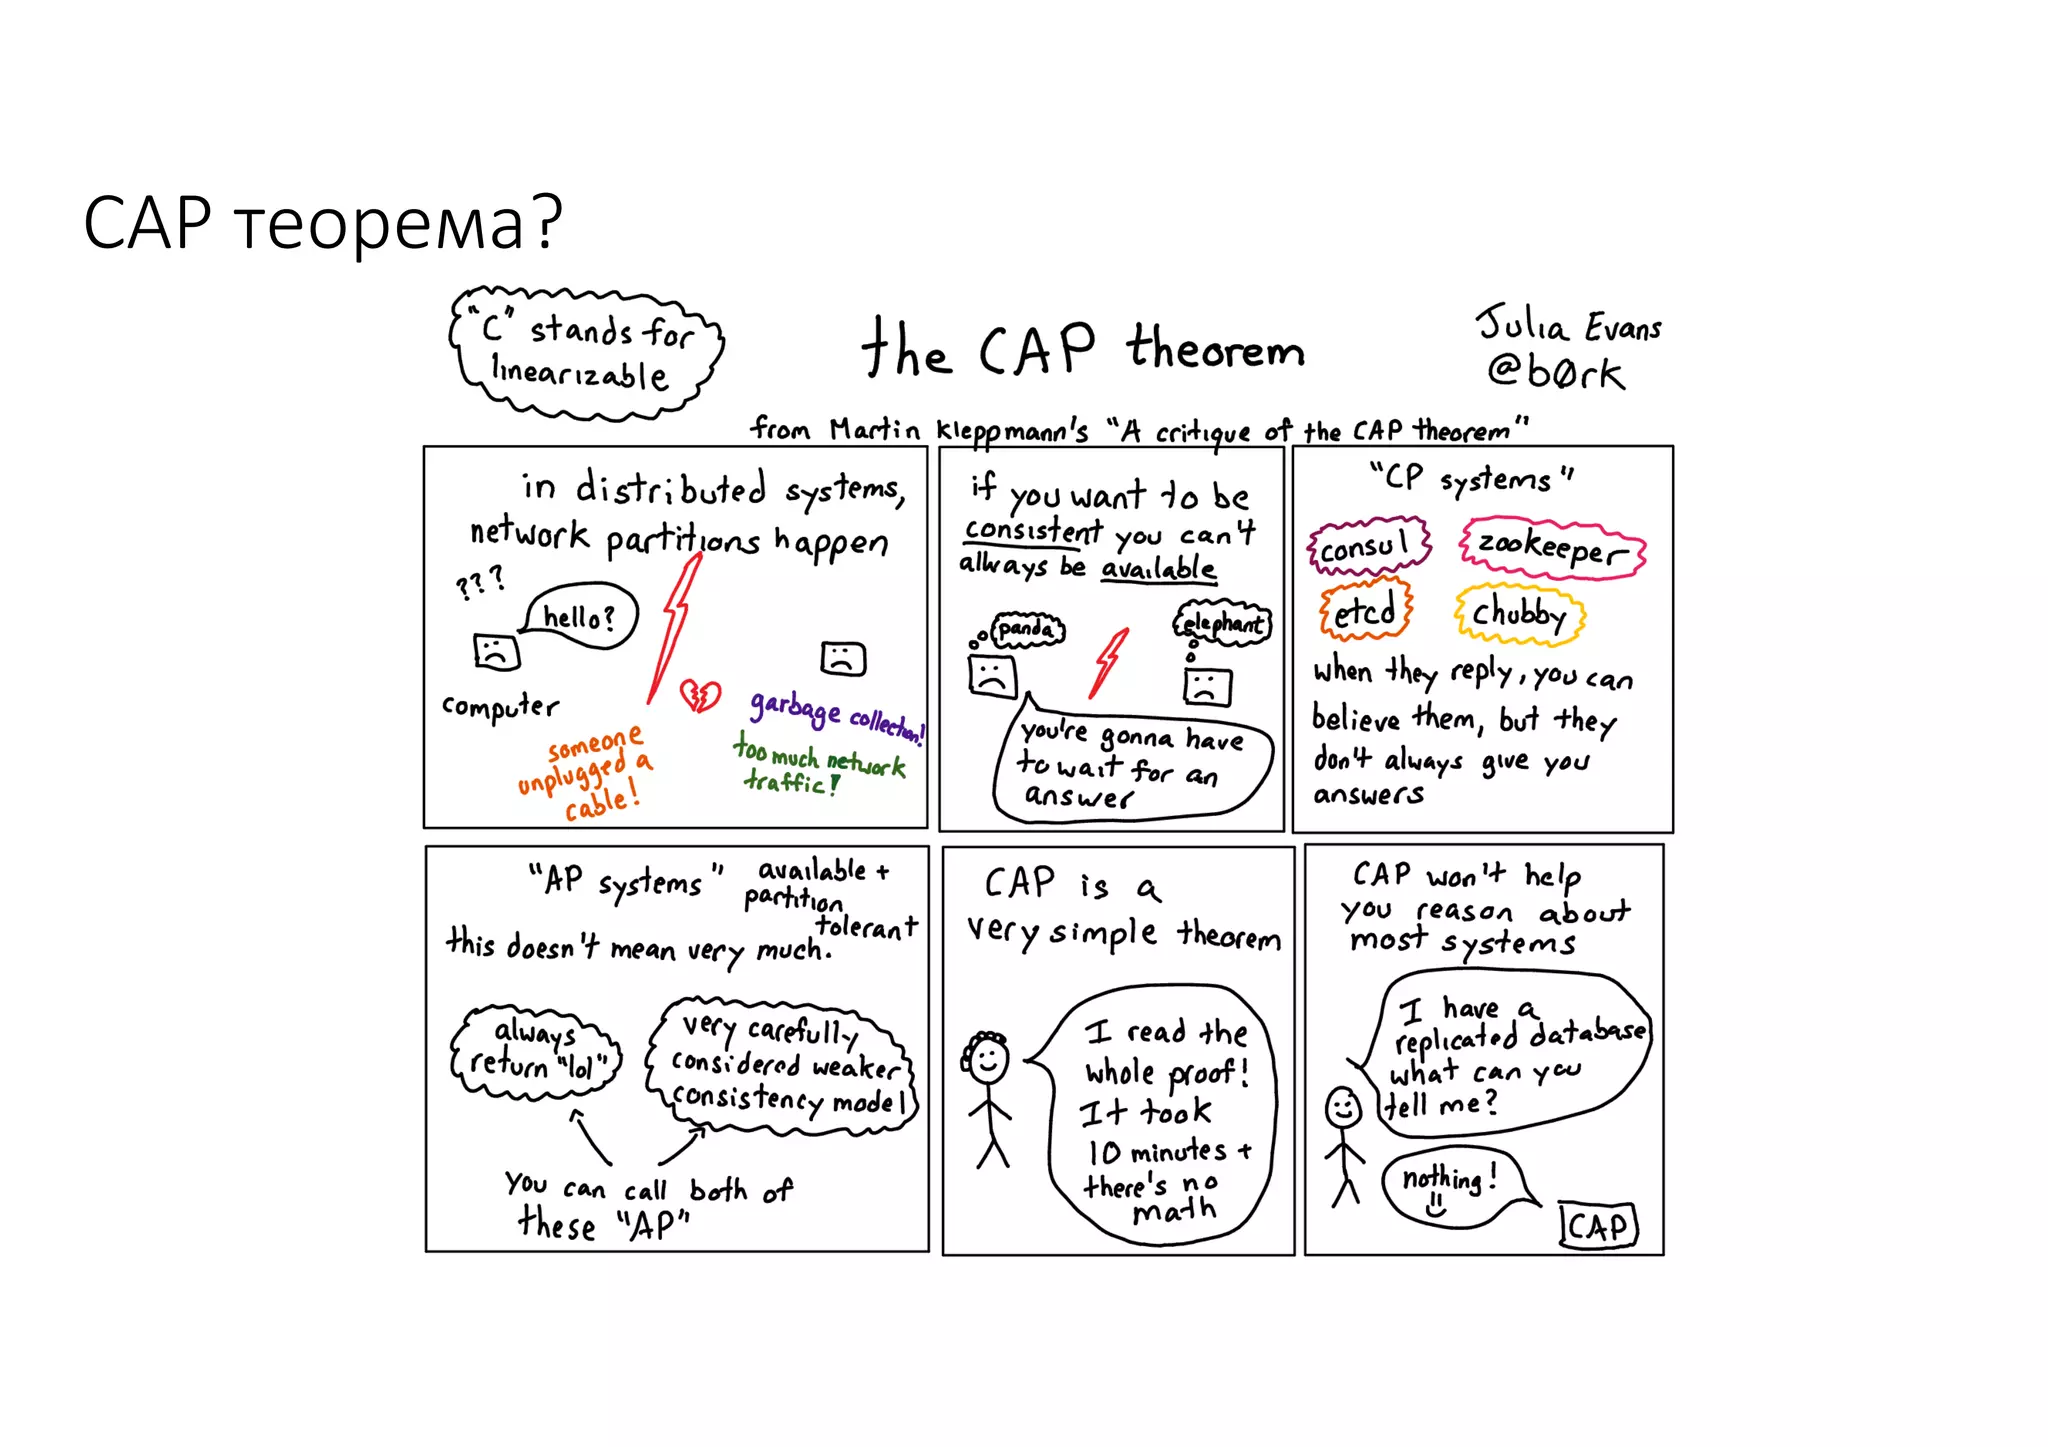 CAP теорема?
"C" stands for
linearizable
the CAP theorem
Julia Evans
@b0rk
from Martin Kleppmann's "A critique of the CAP theorem"
in distributed systems,
network partitions happen
???
hello?
computer
someone
unplugged a
cable!
garbage collection!
too much network
traffic!
if you want to be
consistent you can't
always be available
panda
elephant
you're gonna have
to wait for an
answer
"CP systems"
consul
zookeeper
etcd
chubby
when they reply, you can
believe them, but they
don't always give you
answers
"AP systems"
available +
partition
tolerant
this doesn't mean very much.
always
return "lol"
very carefully
considered weaker
consistency model
you can call both of
these "AP"
CAP is a
very simple theorem
I read the
whole proof!
It took
10 minutes +
there's no
math
CAP won't help
you reason about
most systems
I have a
replicated database
what can you
tell me?
nothing!
CAP